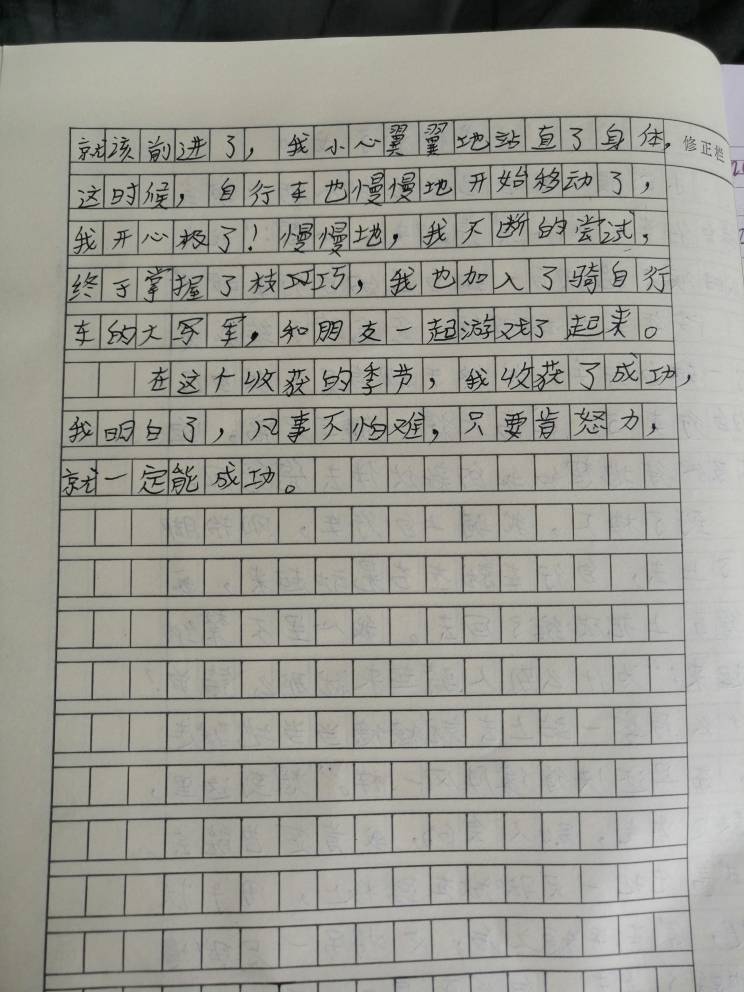 就该前进了，我小心翼翼地站直了身体，
修正栏
这时候，自行车也慢慢地开始移动了，
我开心极了！慢慢地，我不断的尝试，
终于掌握了技巧巧，我也加入了骑自行
车的大军军，和朋友一起游戏了起来。
在这个收获的季节，我收获了成功，
我明白了，凡事不怕难，只要肯怒力，
就一定能成功。